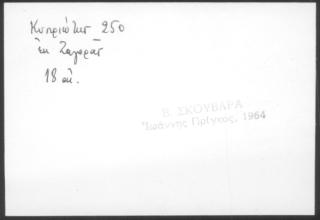 Κυπριώτης 250
ἐκ Ζαγορᾶς
18 αἰ.
Β. ΣΚΟΥΒΑΡΑ
Ἰωάννης Πρίγκος, 1964